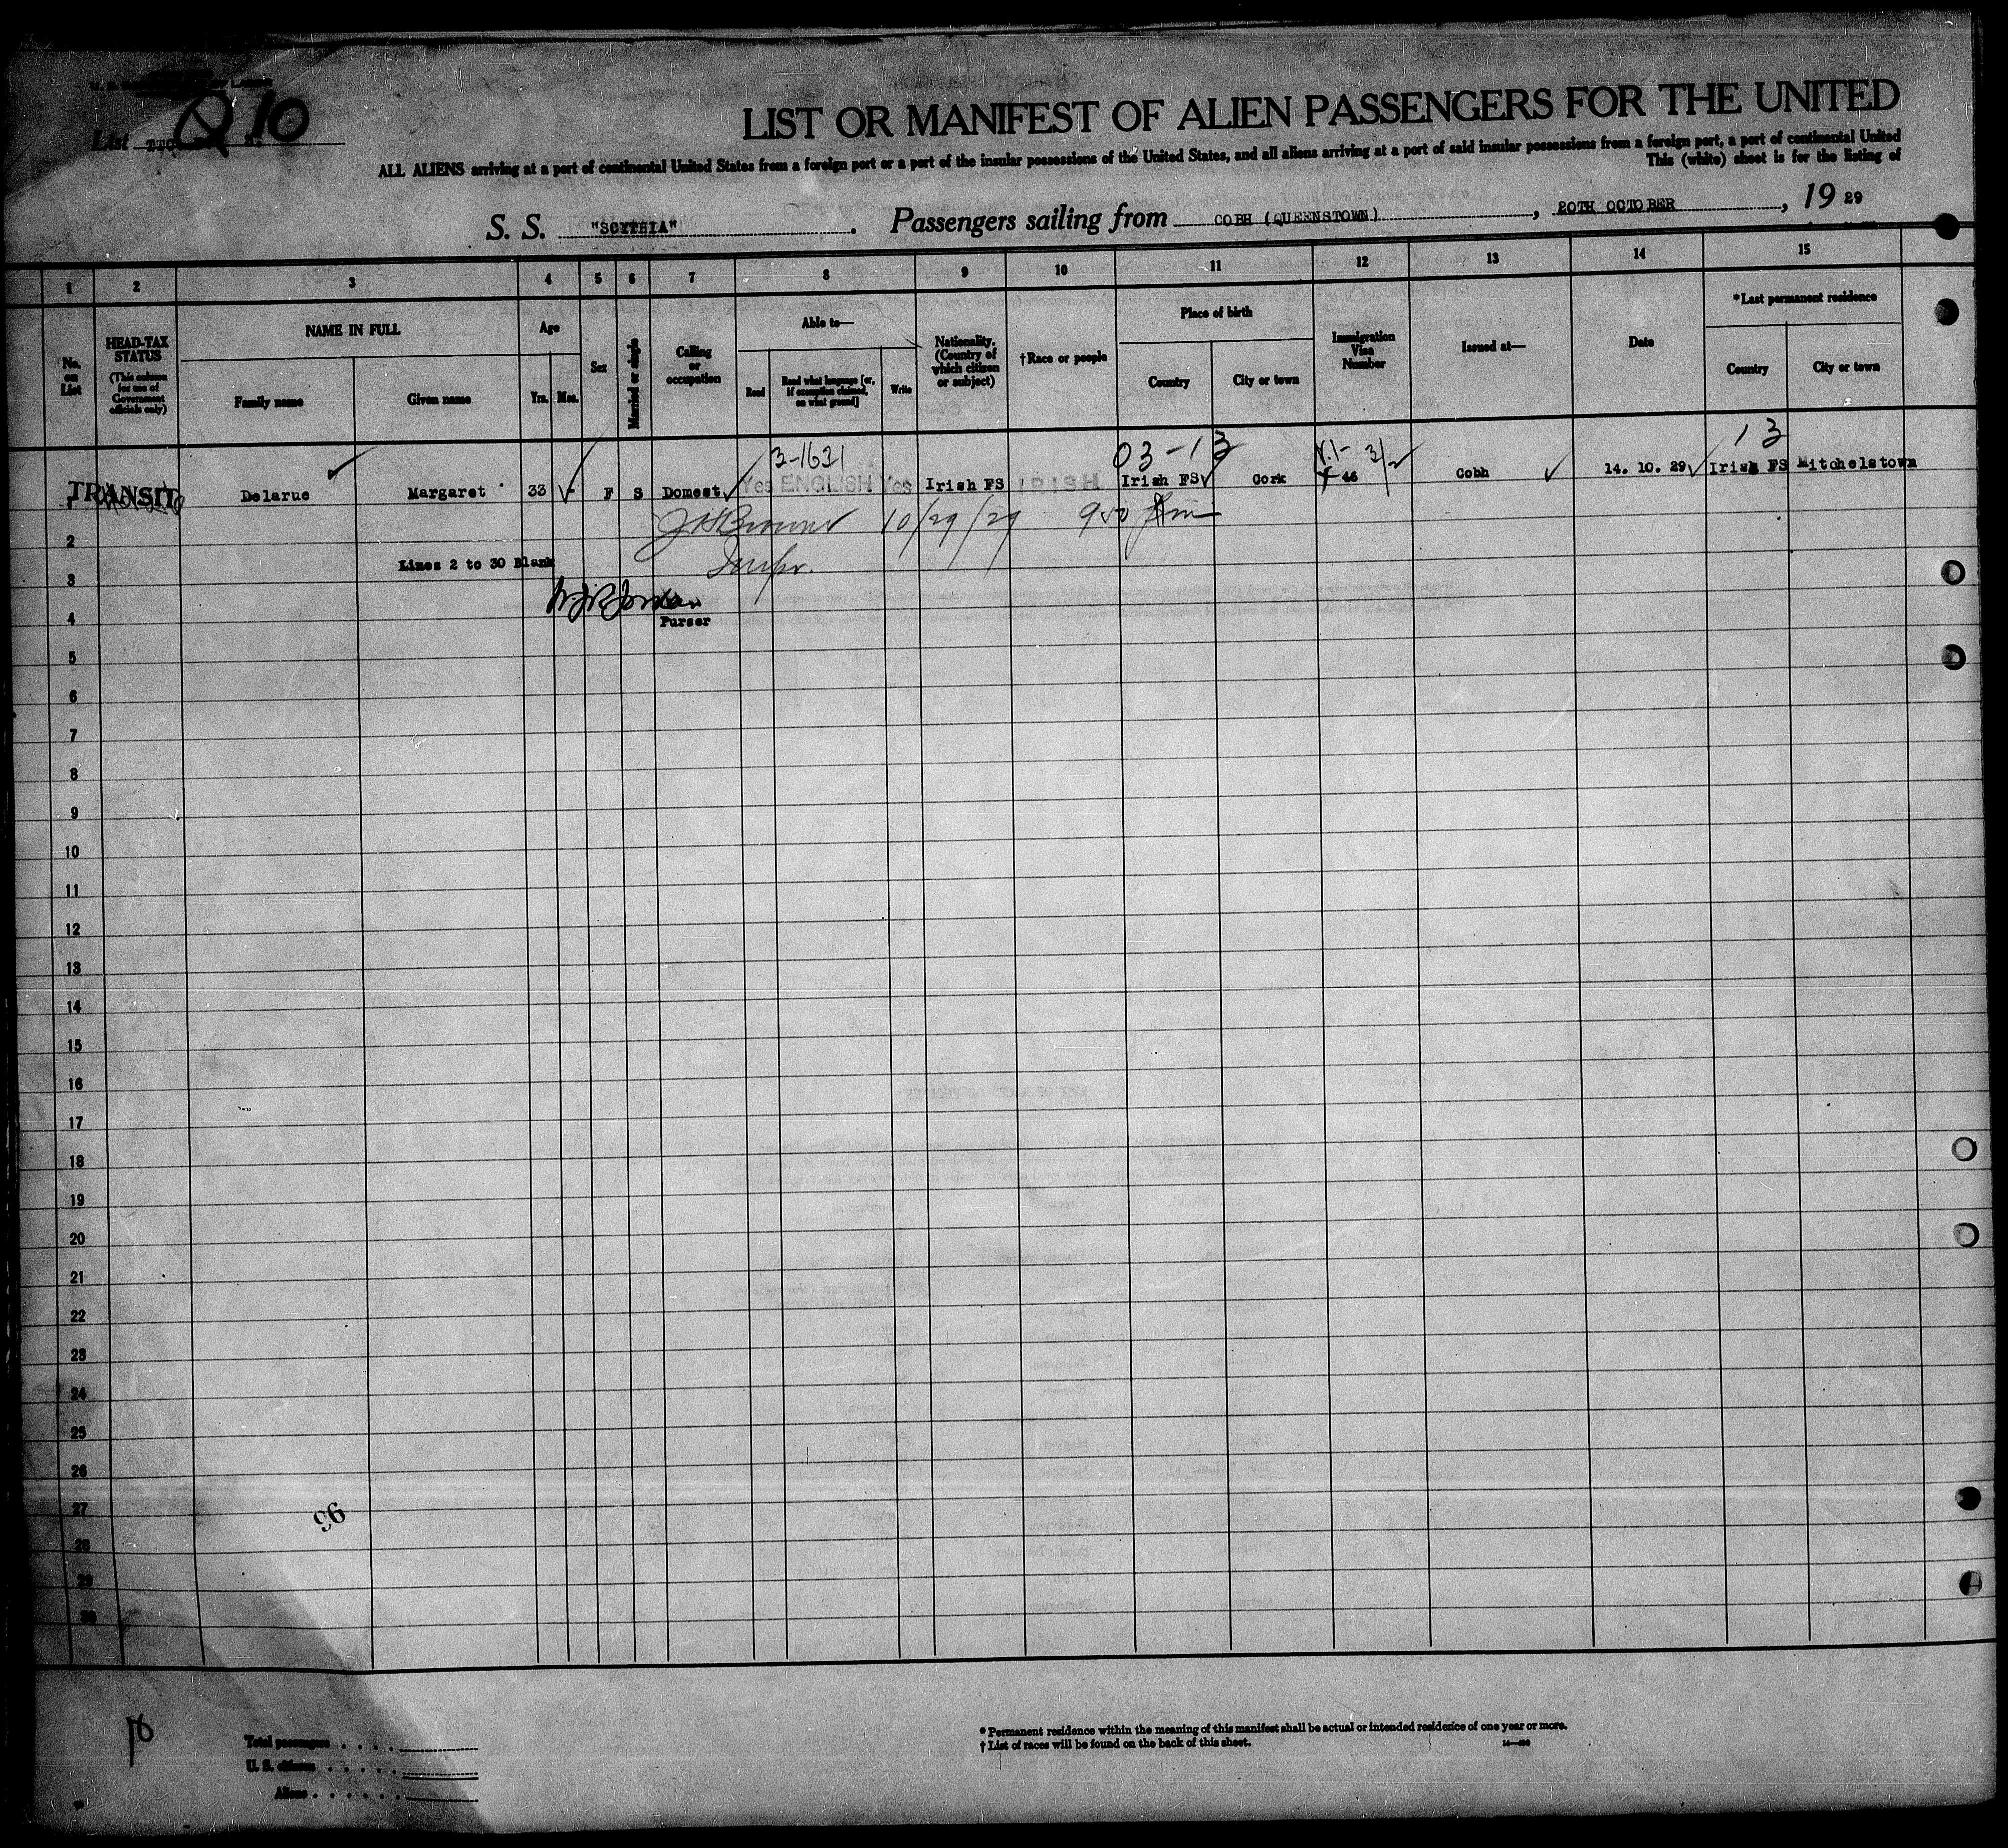 List Q 10
LIST OR MANIFEST OF ALIEN PASSENGERS FOR THE UNITED
ALL ALIENS arriving at a port of continental United States from a foreign port or a port of the insular possessions of the United States, and all aliens arriving at a port of said insular possessions from a foreign port, a port of continental United
This (white) sheet is for the listing of
S. S. "SCYTHIA". Passengers sailing from COBH (QUEENSTOWN), 20TH OCTOBER, 19 29
1 2 3 4 5 6 7 8 9 10 11 12 13 14 15
No. on List
HEAD-TAX STATUS (This column for use of Government officials only)
NAME IN FULL
Family name Given name
Age
Yrs. Mos.
Sex
Married or single
Calling or occupation
Able to—
Read Read what language [or, if exemption claimed, on what ground] Write
Nationality. (Country of which citizen or subject)
†Race or people
Place of birth
Country City or town
Immigration Visa Number
Issued at—
Date
*Last permanent residence
Country City or town
3-1631 03-13 13
TRANSIT Delarue Margaret 33 - F S Domest Yes ENGLISH Yes Irish FS IRISH Irish FS Cork 46 Cobh 14. 10. 29 Irish FS Mitchelstown
10/29/29
2
Lines 2 to 30 Blank
3
4
Purser
5
6
7
8
9
10
11
12
13
14
15
16
17
18
19
20
21
22
23
24
25
26
27
96
28
29
30
Total passengers
U. S. citizens
Aliens
* Permanent residence within the meaning of this manifest shall be actual or intended residence of one year or more.
† List of races will be found on the back of this sheet.